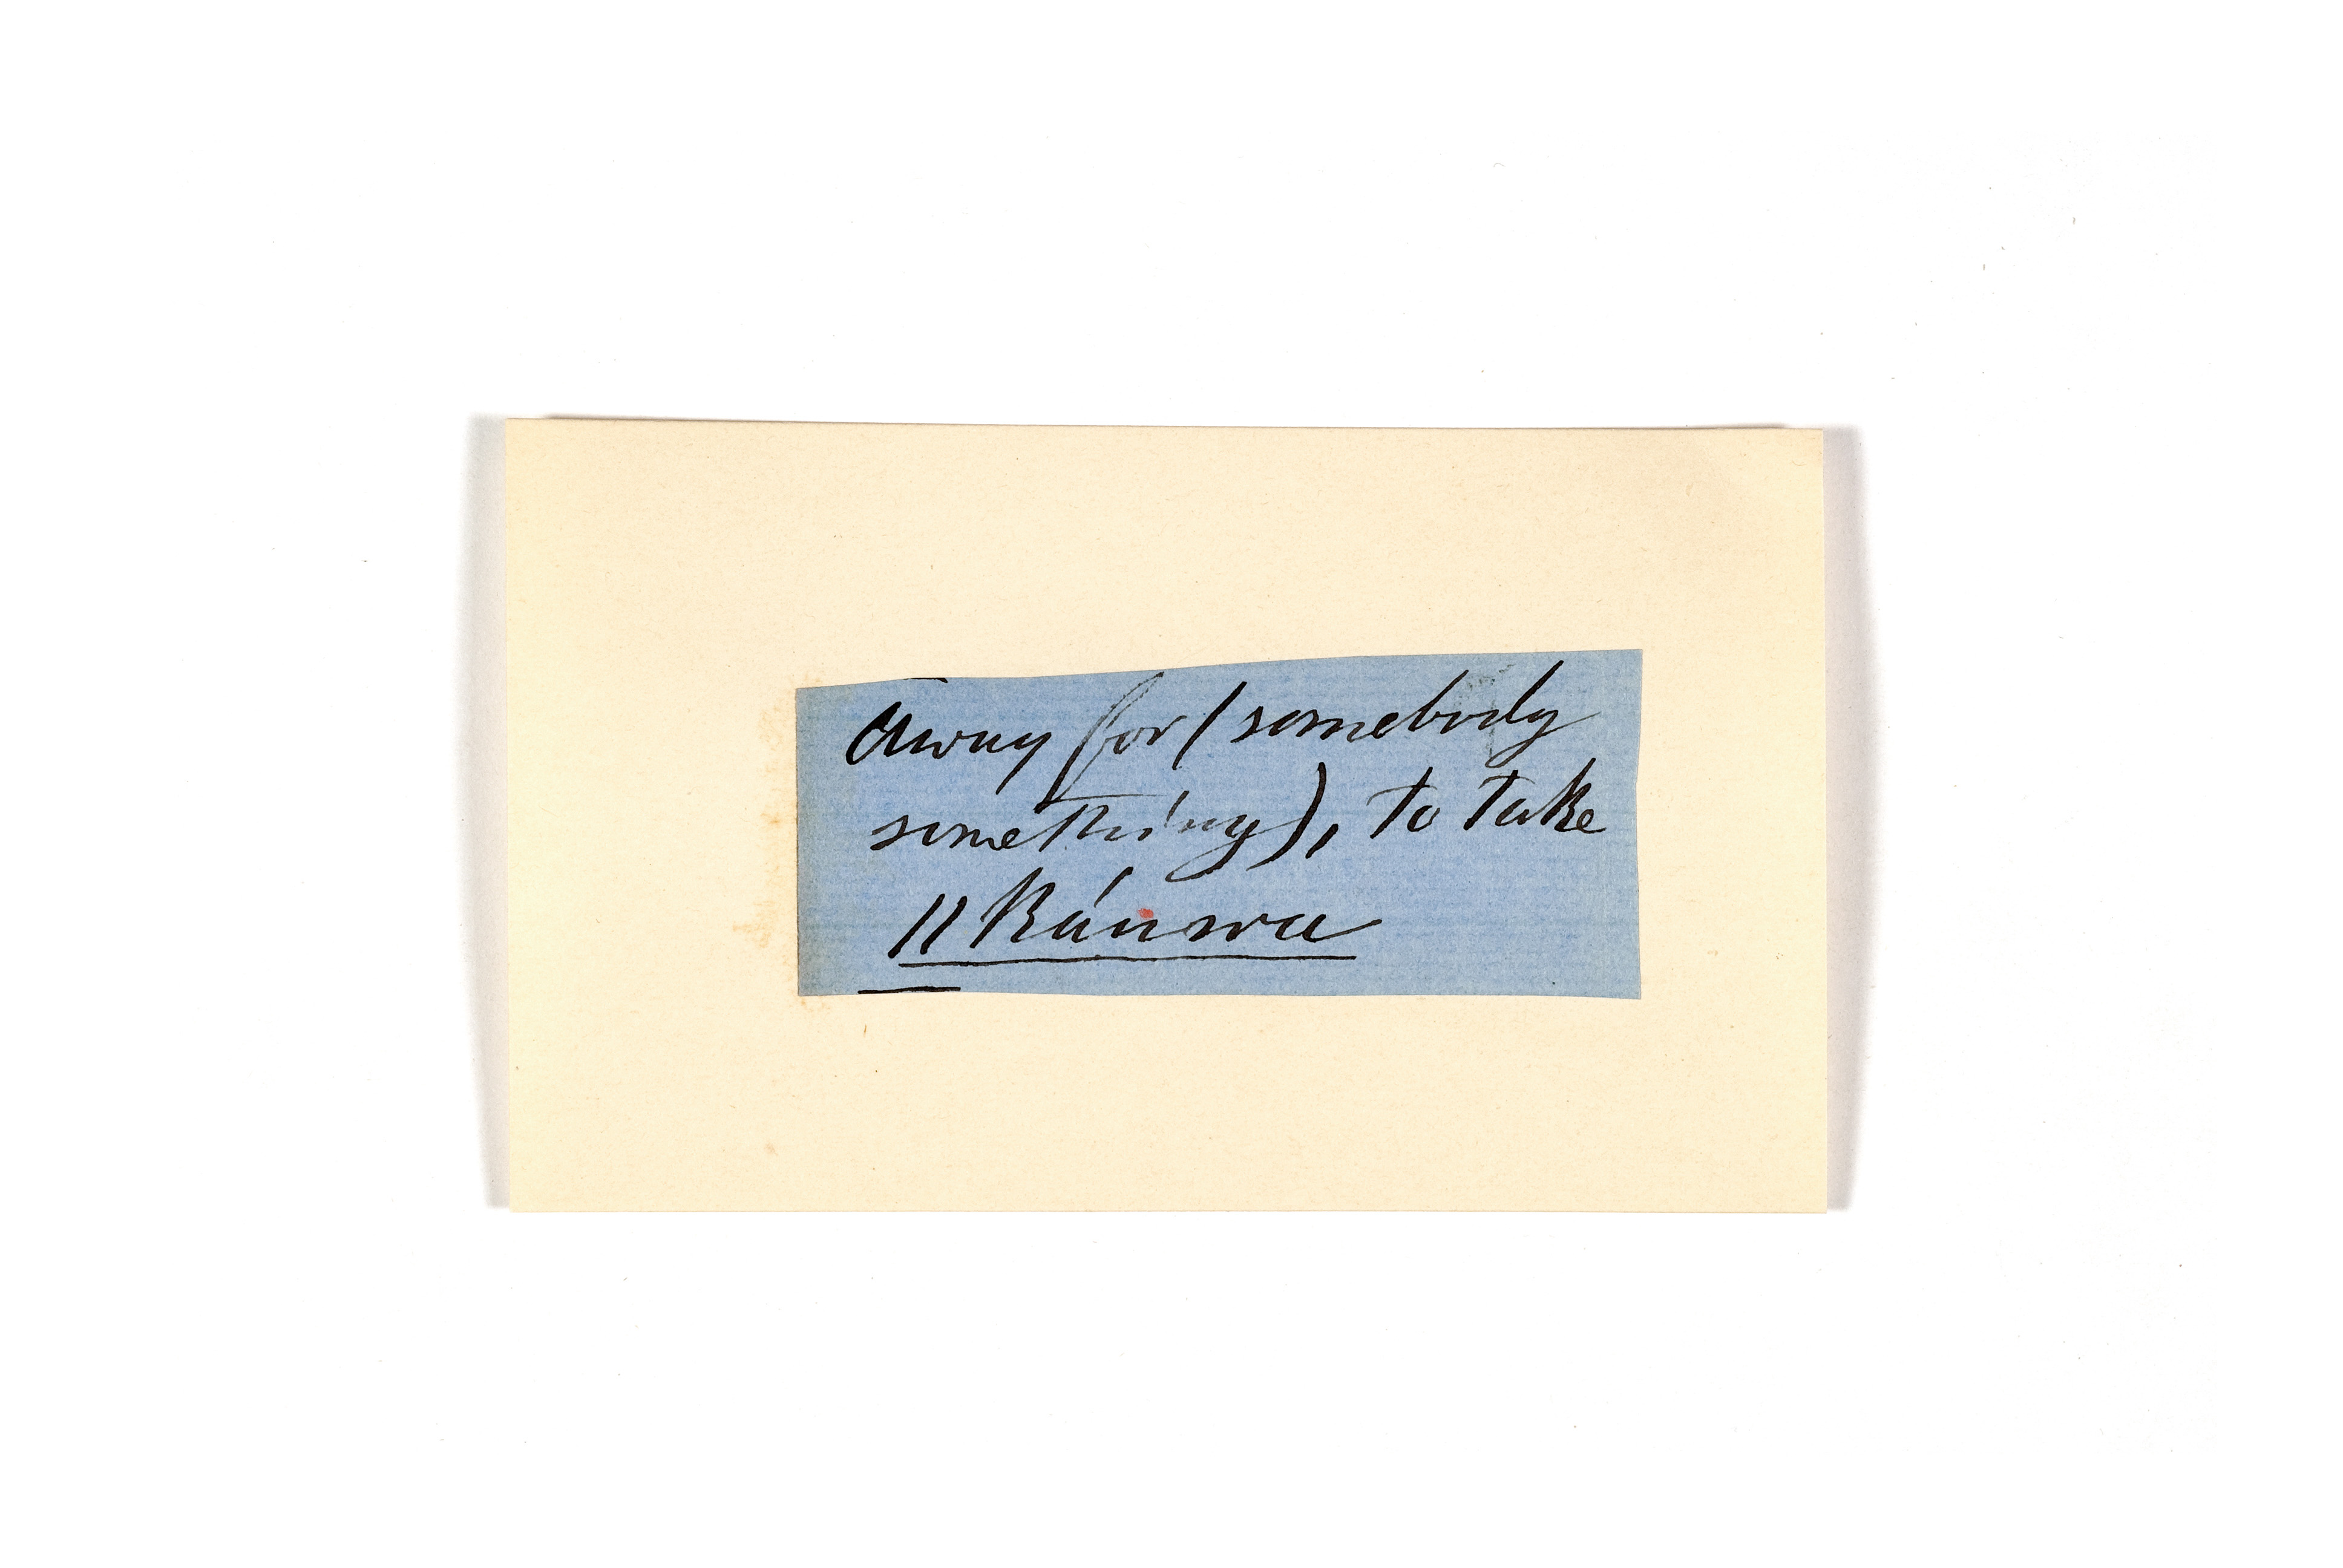 Away for (somebody
something), to take
ǁkáuwa